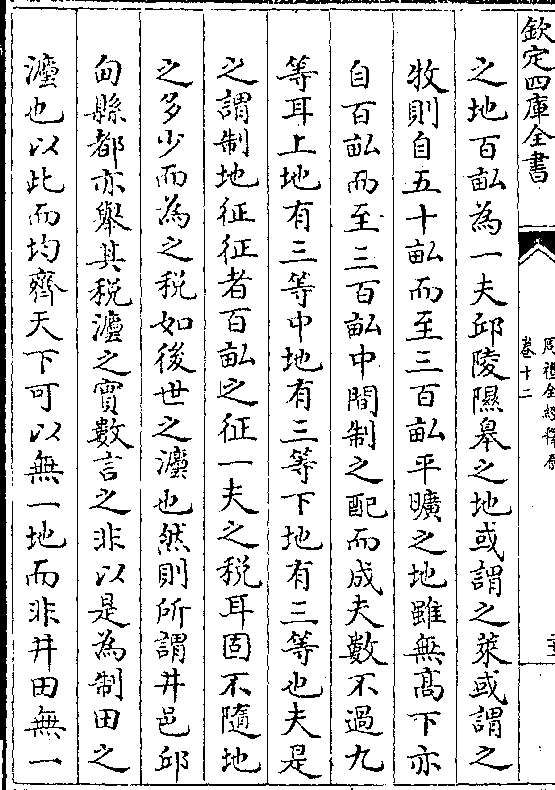 欽定四庫全書
卷十二
之地百畝為一夫邱陵隰皋之地或謂之萊或謂之
牧則自五十畝而至三百畝平曠之地雖無髙下亦
自百畝而至三百畝中間制之配而成夫數不過九
等耳上地有三等中地有三等下地有三等也夫是
之謂制地征征者百畝之征一夫之稅耳固不隨地
之多少而為之稅如後世之灋也然則所謂井邑邱
甸縣都亦舉其稅灋之實數言之非以是為制田之
灋也以此而均齊天下可以無一地而非井田無一